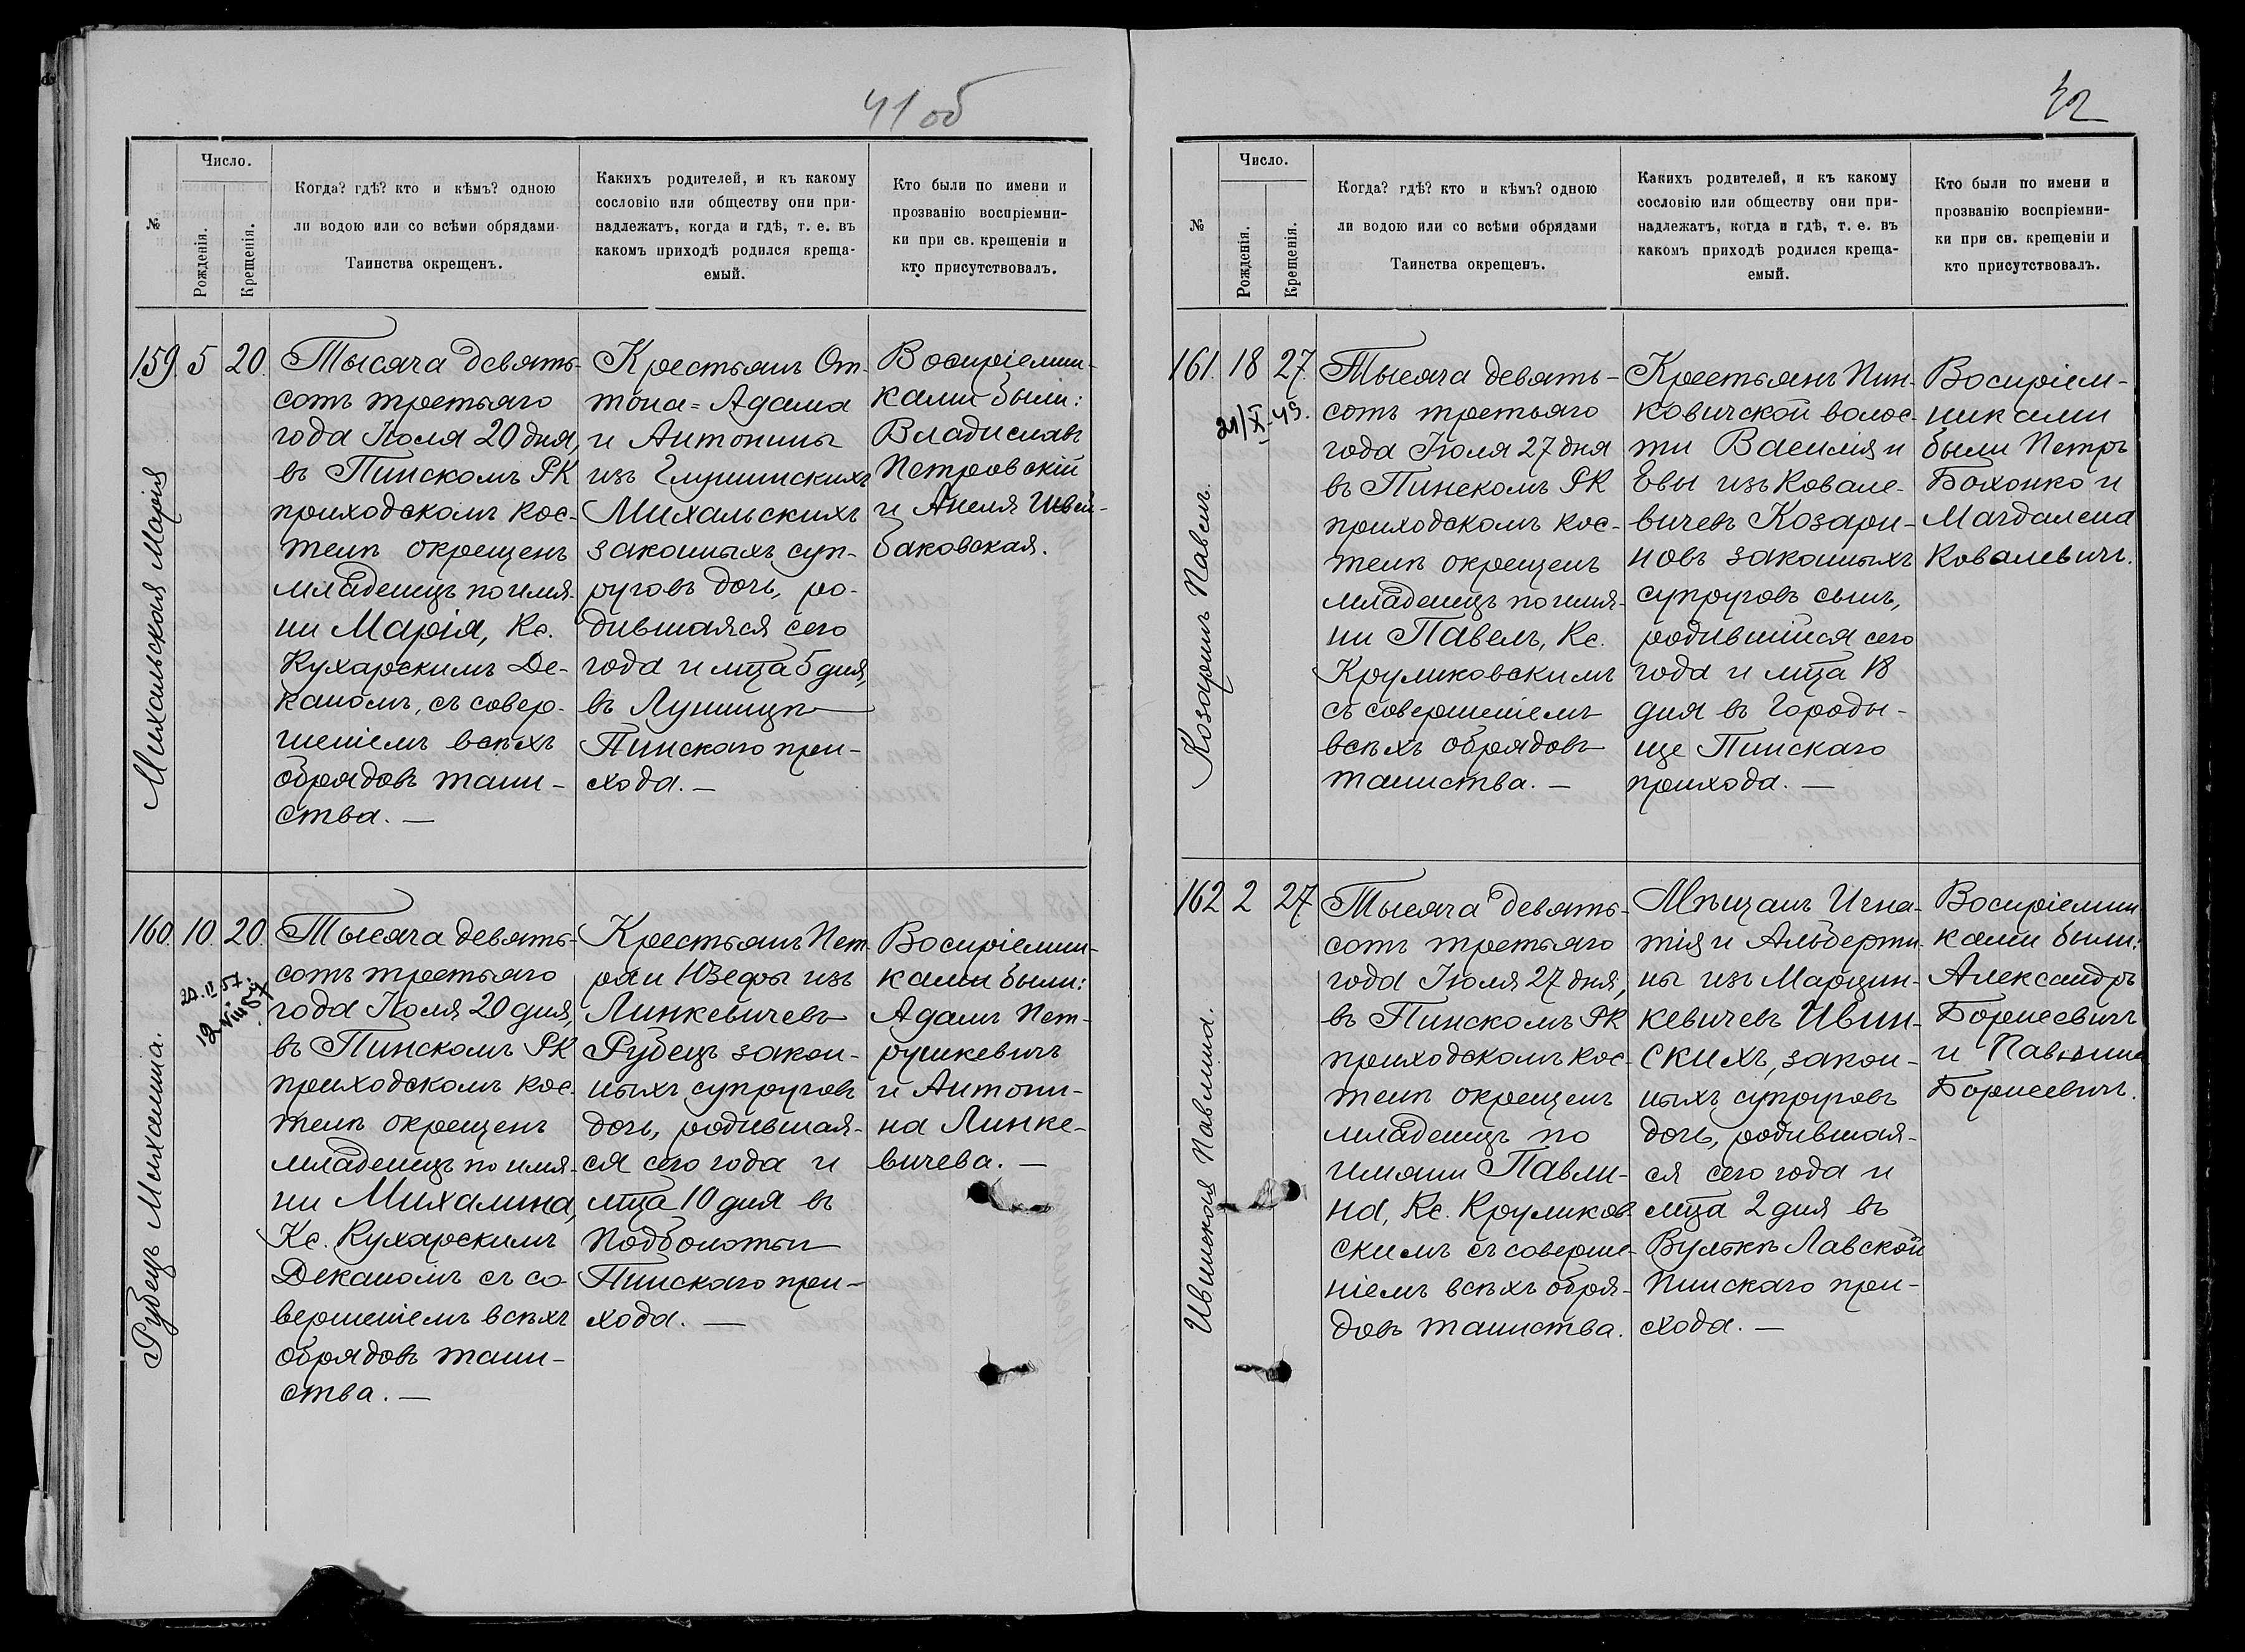 41 об
№
Число.
Рожденія.
Крещенія.
Когда? гдѣ? кто и кѣмъ? одною
ли водою или со всѣми обрядами
Таинства окрещенъ.
Какихъ родителей, и къ какому
сословію или обществу они при-
надлежатъ, когда и гдѣ, т. е. въ
какомъ приходѣ родился креща-
емый.
Кто были по имени и
прозванію воспріемни-
ки при св. крещеніи и
кто присутствовалъ.
Михальская Марія
159. 5 20.
Тысяча девять-
сотъ третьяго
года Іюля 20 дня,
въ Пинскомъ РК
приходскомъ кос-
телѣ окрещенъ
младенецъ по имя-
ни Марія, Кс.
Кухарскимъ Де-
каномъ, съ совер-
шеніемъ всѣхъ
обрядовъ таин-
ства. —
Крестьянъ Он-
тона-Адама
и Антонины
изъ Глушинскихъ
Михальскихъ
законныхъ суп-
руговъ дочь, ро-
дившаяся сего
года и мца 5 дня,
въ Лунницѣ
Пинскаго при-
хода. —
Воспріемни-
ками были:
Владиславъ
Петровскій
и Анеля
баковская.
Рубецъ Михалина.
160. 10. 20.
Тысяча девять-
сотъ третьяго
года Іюля 20 дня,
въ Пинскомъ РК
приходскомъ кос-
телѣ окрещенъ
младенецъ по имя-
ни Михалина,
Кс. Кухарскимъ
Деканомъ съ со-
вершеніемъ всѣхъ
обрядовъ таин-
ства. —
Крестьянъ Пет-
ра и Юзефы изъ
Линкевичевъ
Рубецъ закон-
ныхъ супруговъ
дочь, родившая-
ся сего года и
мца 10 дня въ
Подболотьи
Пинскаго при-
хода. —
Воспріемни-
ками были:
Адамъ Пет-
рушкевичъ
и Антони-
на Линке-
вичева. —
42
№
Число.
Рожденія.
Крещенія.
Когда? гдѣ? кто и кѣмъ? одною
ли водою или со всѣми обрядами
Таинства окрещенъ.
Какихъ родителей, и къ какому
сословію или обществу они при-
надлежатъ, когда и гдѣ, т. е. въ
какомъ приходѣ родился креща-
емый.
Кто были по имени и
прозванію воспріемни-
ки при св. крещеніи и
кто присутствовалъ.
Козаринъ Павелъ.
161. 18 27.
21/X-49.
Тысяча девять-
сотъ третьяго
года Іюля 27 дня
въ Пинскомъ РК
приходскомъ кос-
телѣ окрещенъ
младенецъ по имя-
ни Павелъ, Кс.
Круликовскимъ
съ совершеніемъ
всѣхъ обрядовъ
таинства. —
Крестьянъ Пин-
ковичской волос-
ти Василія и
Евы изъ Ковале-
вичевъ Козари-
новъ законныхъ
супруговъ сынъ,
родившійся сего
года и мца 18
дня въ Городы-
ще Пинскаго
прихода. —
Воспріем-
никами
были Петръ
Бохонко и
Магдалена
Ковалевичъ.
Ивинская Павлина.
162 2 27
Тысяча девять-
сотъ третьяго
года Іюля 27 дня,
въ Пинскомъ РК
приходскомъ кос-
телѣ окрещенъ
младенецъ по
имяни Павли-
на, Кс. Круликов-
скимъ съ соверше-
ніемъ всѣхъ обря-
довъ таинства.
Мѣщанъ Игна-
тія и Альберти-
ны изъ Марцин-
кевичевъ Ивин-
скихъ, закон-
ныхъ супруговъ
дочь, родившая-
ся сего года и
мца 2 дня въ
Вулькѣ Лавской
Пинскаго при-
хода. —
Воспріемни
ками были:
Александръ
Борисевичъ
и Павлина
Борисевичъ.